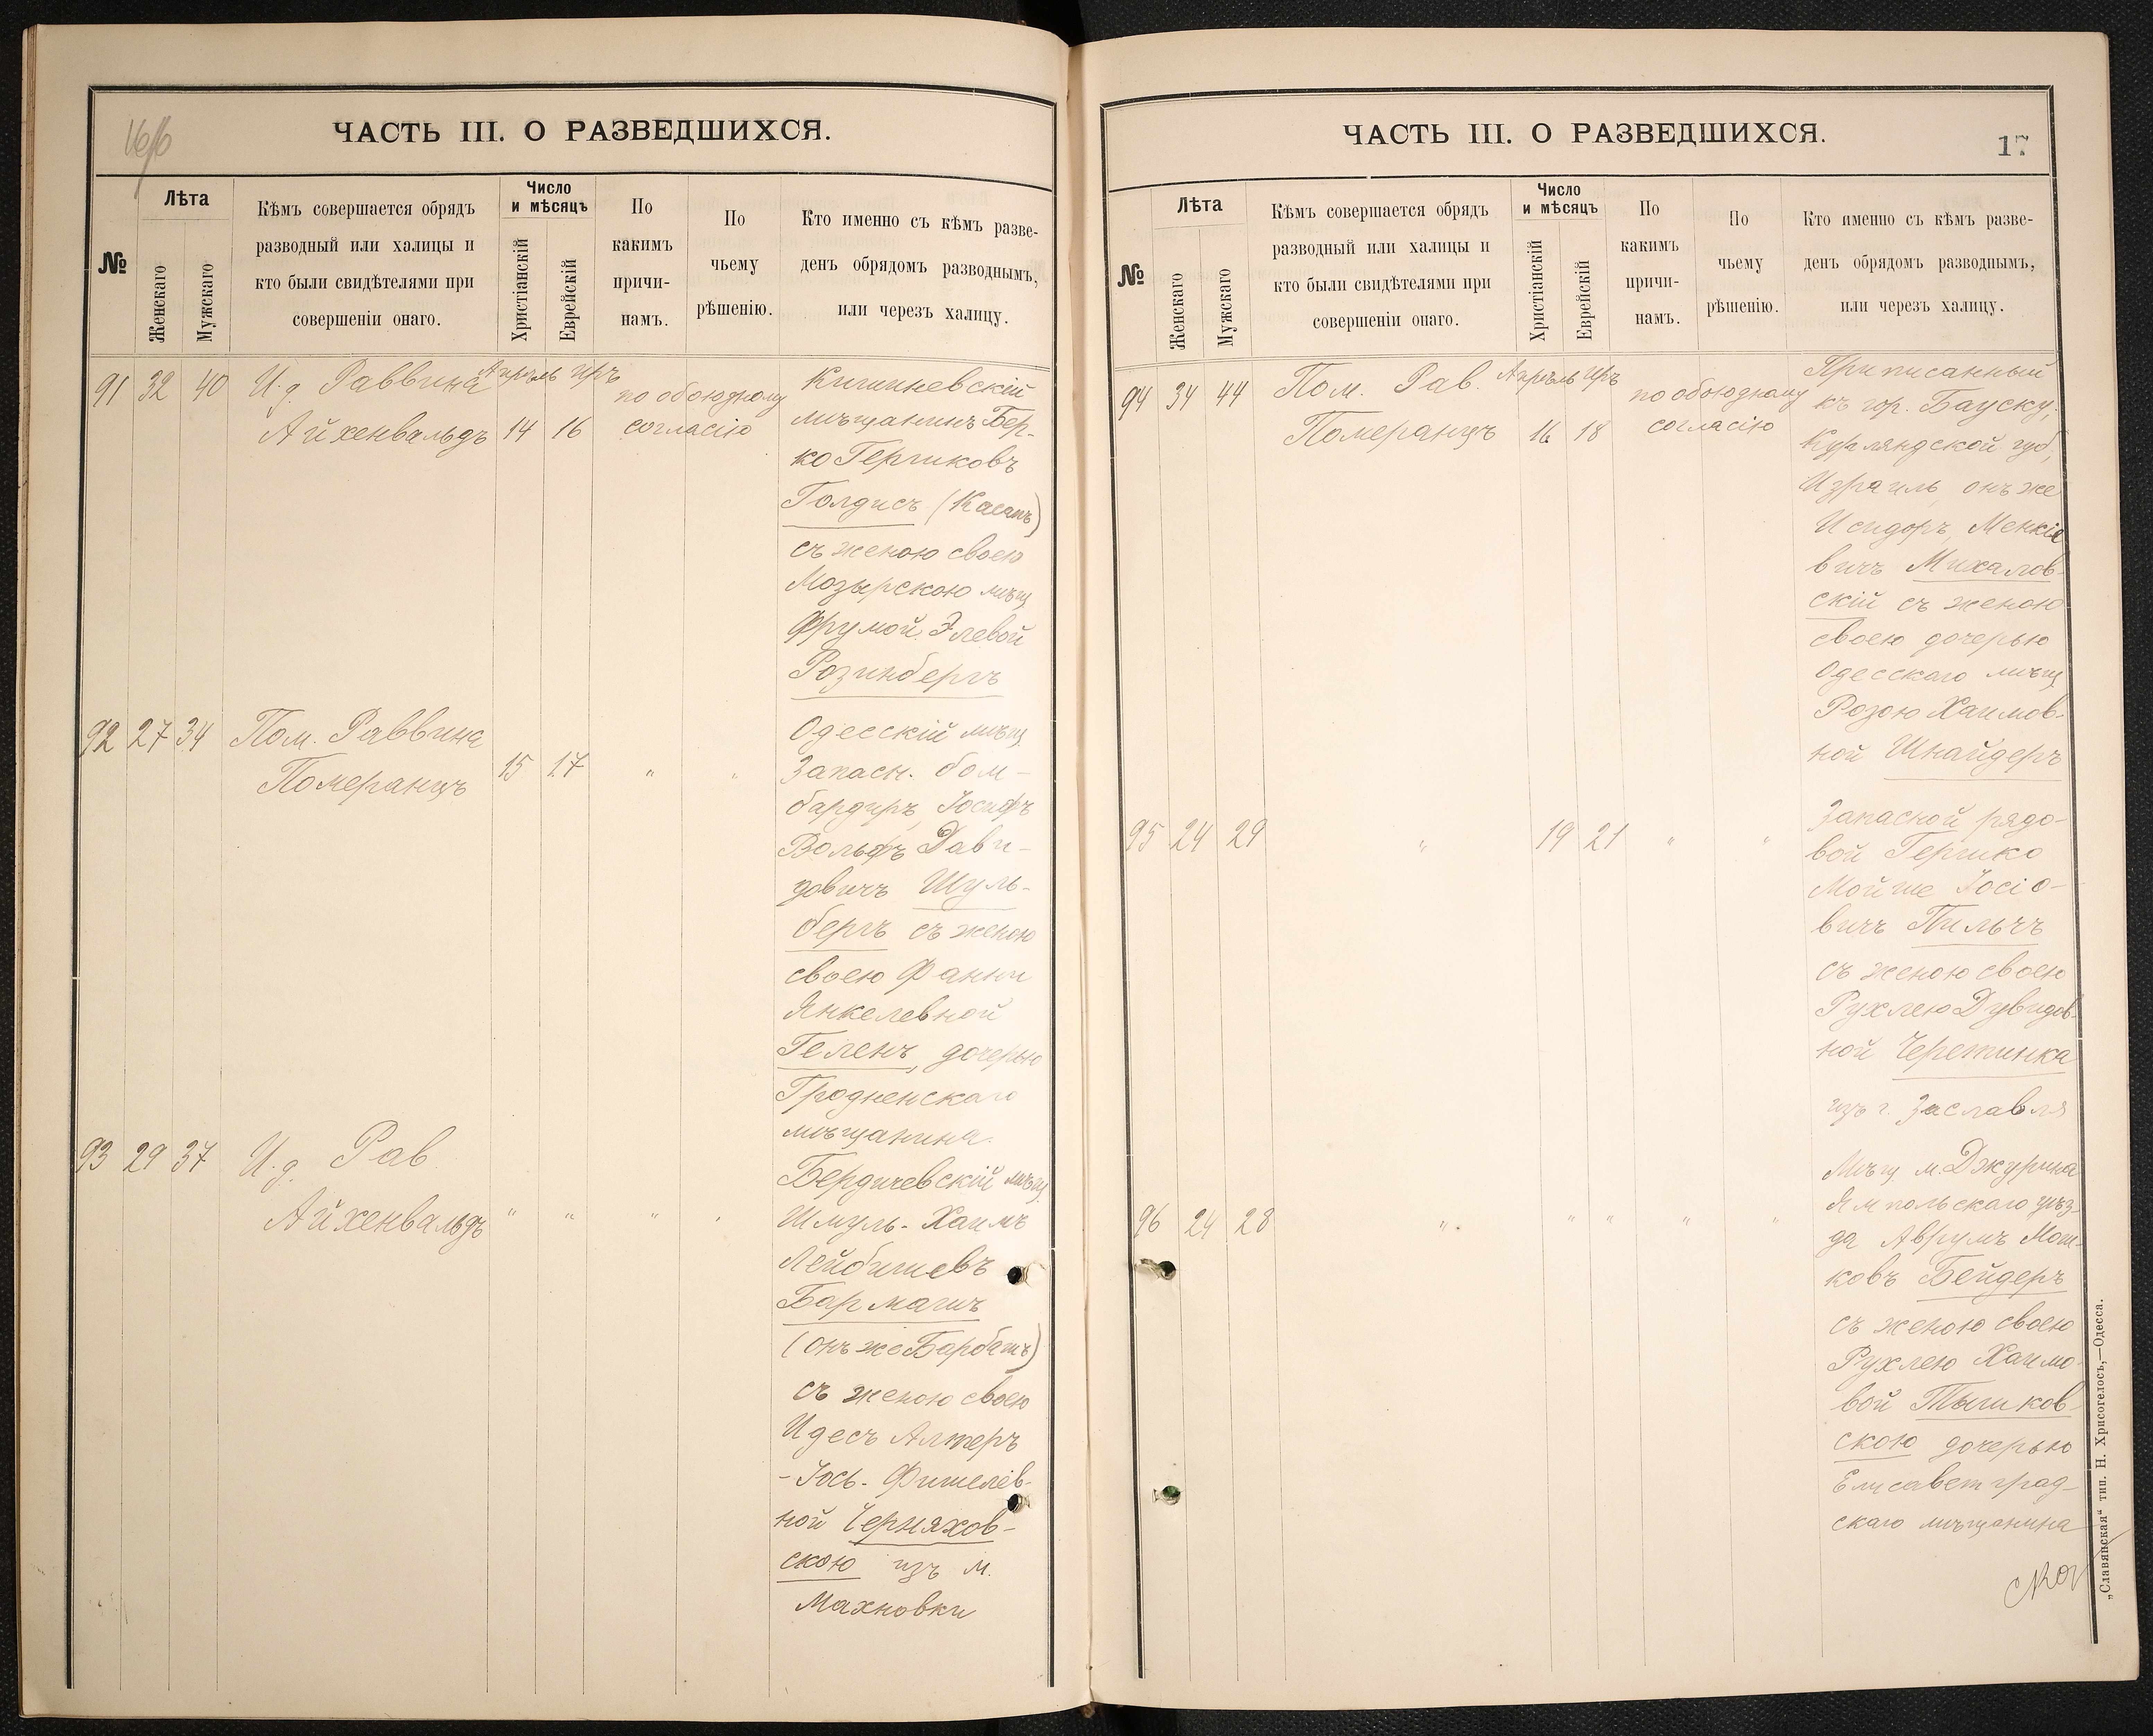 16/б
ЧАСТЬ III. О РАЗВЕДШИХСЯ.
№
Лѣта
Женскаго
Мужскаго
Кѣмъ совершается обрядъ
разводный или халицы и
кто были свидѣтелями при
совершеніи онаго.
Число
и мѣсяцъ
Христіанскій
Еврейскій
По
какимъ
причи-
намъ.
По
чьему
рѣшенію.
Кто именно съ кѣмъ разве-
денъ обрядомъ разводнымъ,
или черезъ халицу.
91 32 40 И.д. Раввина Апрѣль Иръ
Айхенвальдъ 14 16
по обоюдному
согласію
Кишиневскій
мѣщанинъ Бер-
ко Гершковъ
Голдисъ (Касапъ)
съ женою своею
Мозырскою мѣщ
Фрумой Элевой
Розинбергъ
92 27 34 Пом. Раввина
Померанцъ 15 17 " "
Одесскій мѣщ
Запасн. бом-
бардиръ, Іосифъ
Вольфъ Дави-
довичъ Шуль-
бергъ съ женою
своею Фанни
Янкелевной
Геленъ, дочерью
Гродненскаго
мѣщанина.
93 29 37 И.д. Рав
Айхенвальдъ " " " "
Бердичевскій мѣщ
Шмуль-Хаимъ
Лейбишевъ
Бармашъ
(онъ же Барбашъ)
съ женою своею
Идесъ Алтеръ
-Іось-Фишелев-
ной Черняхов-
скою изъ м.
Махновки
ЧАСТЬ III. О РАЗВЕДШИХСЯ.
17
№
Лѣта
Женскаго
Мужскаго
Кѣмъ совершается обрядъ
разводный или халицы и
кто были свидѣтелями при
совершеніи онаго.
Число
и мѣсяцъ
Христіанскій
Еврейскій
По
какимъ
причи-
намъ.
По
чьему
рѣшенію.
Кто именно съ кѣмъ разве-
денъ обрядомъ разводнымъ,
или черезъ халицу.
94 34 44 Пом. Рав. Апрѣль Иръ
Померанцъ 16 18
по обоюдному
согласію
Приписанный
къ гор. Бауску,
Курляндской губ,
Израиль, онъ же
Исидоръ, Менкіе
вичъ Михалов-
скій съ женою
своею дочерью
Одесскаго мѣщ
Розою Хаимов-
ной Шнайдеръ
95 24 29 " 19 21 " "
Запасной рядо-
вой Гершко
Мойше Іосіо-
вичъ Пильчъ
съ женою своею
Рухлею Дувидов-
ной Черетинка
изъ г. Заславля
96 24 28 " " " " "
Мѣщ. м. Джурина
Ямпольскаго уѣз-
да Аврумъ Мош-
ковъ Бейдеръ
съ женою своею
Рухлею Хаимо-
вой Тышков-
скою дочерью
Елисаветград-
скаго мѣщанина
„Славянская“ тип. Н. Хрисогелосъ,—Одесса.